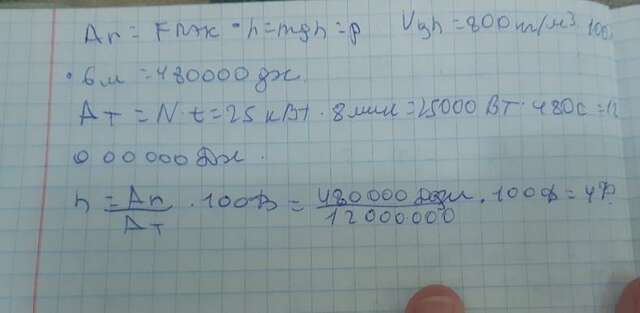 Ап = Fтяж · h = mgh = p Vgh = 800 т/м³ 10
· 6м = 480000 дж
Ат = N · t = 25 кВт · 8 мин = 25000 Вт · 480с = 12
000 000 Дж.
h = Ап/Ат · 100% = 480000 Дж/12000000 · 100% = 4%